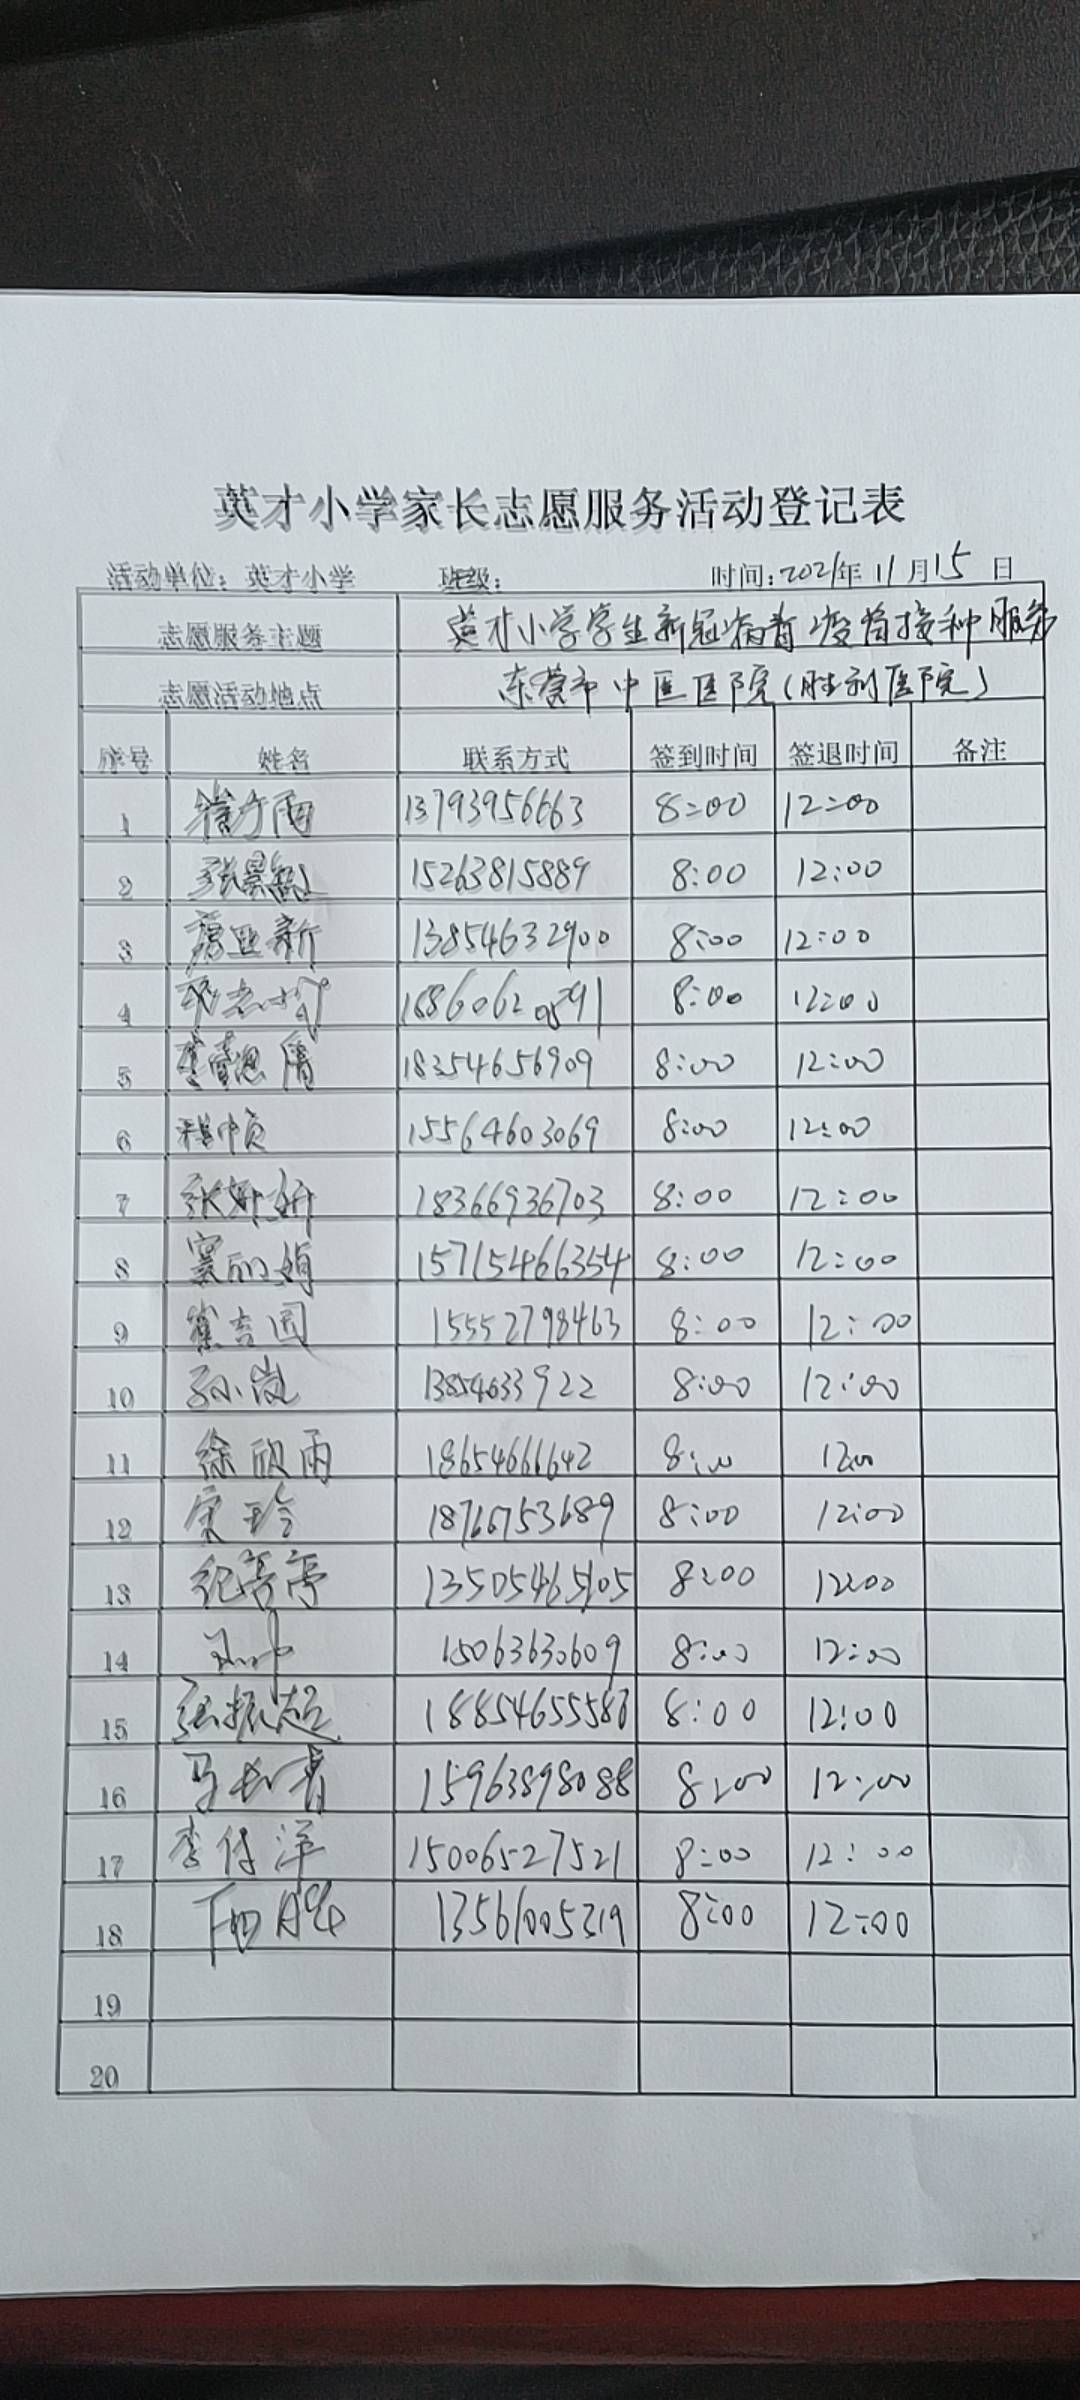 英才小学家长志愿服务活动登记表
活动单位：英才小学 班级： 时间：2021年11月15日
志愿服务主题 英才小学学生新冠病毒疫苗接种服务
志愿活动地点 东营市中医医院（胜利医院）
序号 姓名 联系方式 签到时间 签退时间 备注
1 13793956663 8:00 12:00
2 15263815889 8:00 12:00
3 13854632900 8:00 12:00
4 8:00 12:00
5 18354656909 8:00 12:00
6 15564603069 8:00 12:00
7 张妍妍 18366936703 8:00 12:00
8 窦丽娟 15715466354 8:00 12:00
9 15552798463 8:00 12:00
10 孙小岚 13854633922 8:00 12:00
11 徐欣雨 18654661642 8:00 12:00
12 宋玲 18766753689 8:00 12:00
13 纪亭亭 13505465105 8:00 12:00
14 15063630609 8:00 12:00
15 张振超 8:00 12:00
16 15963898088 8:00 12:00
17 李传洋 15006527521 8:00 12:00
18 13561005319 8:00 12:00
19
20